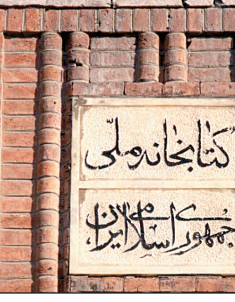 کتابخانه ملّی
جمهوری اسلامی ایران